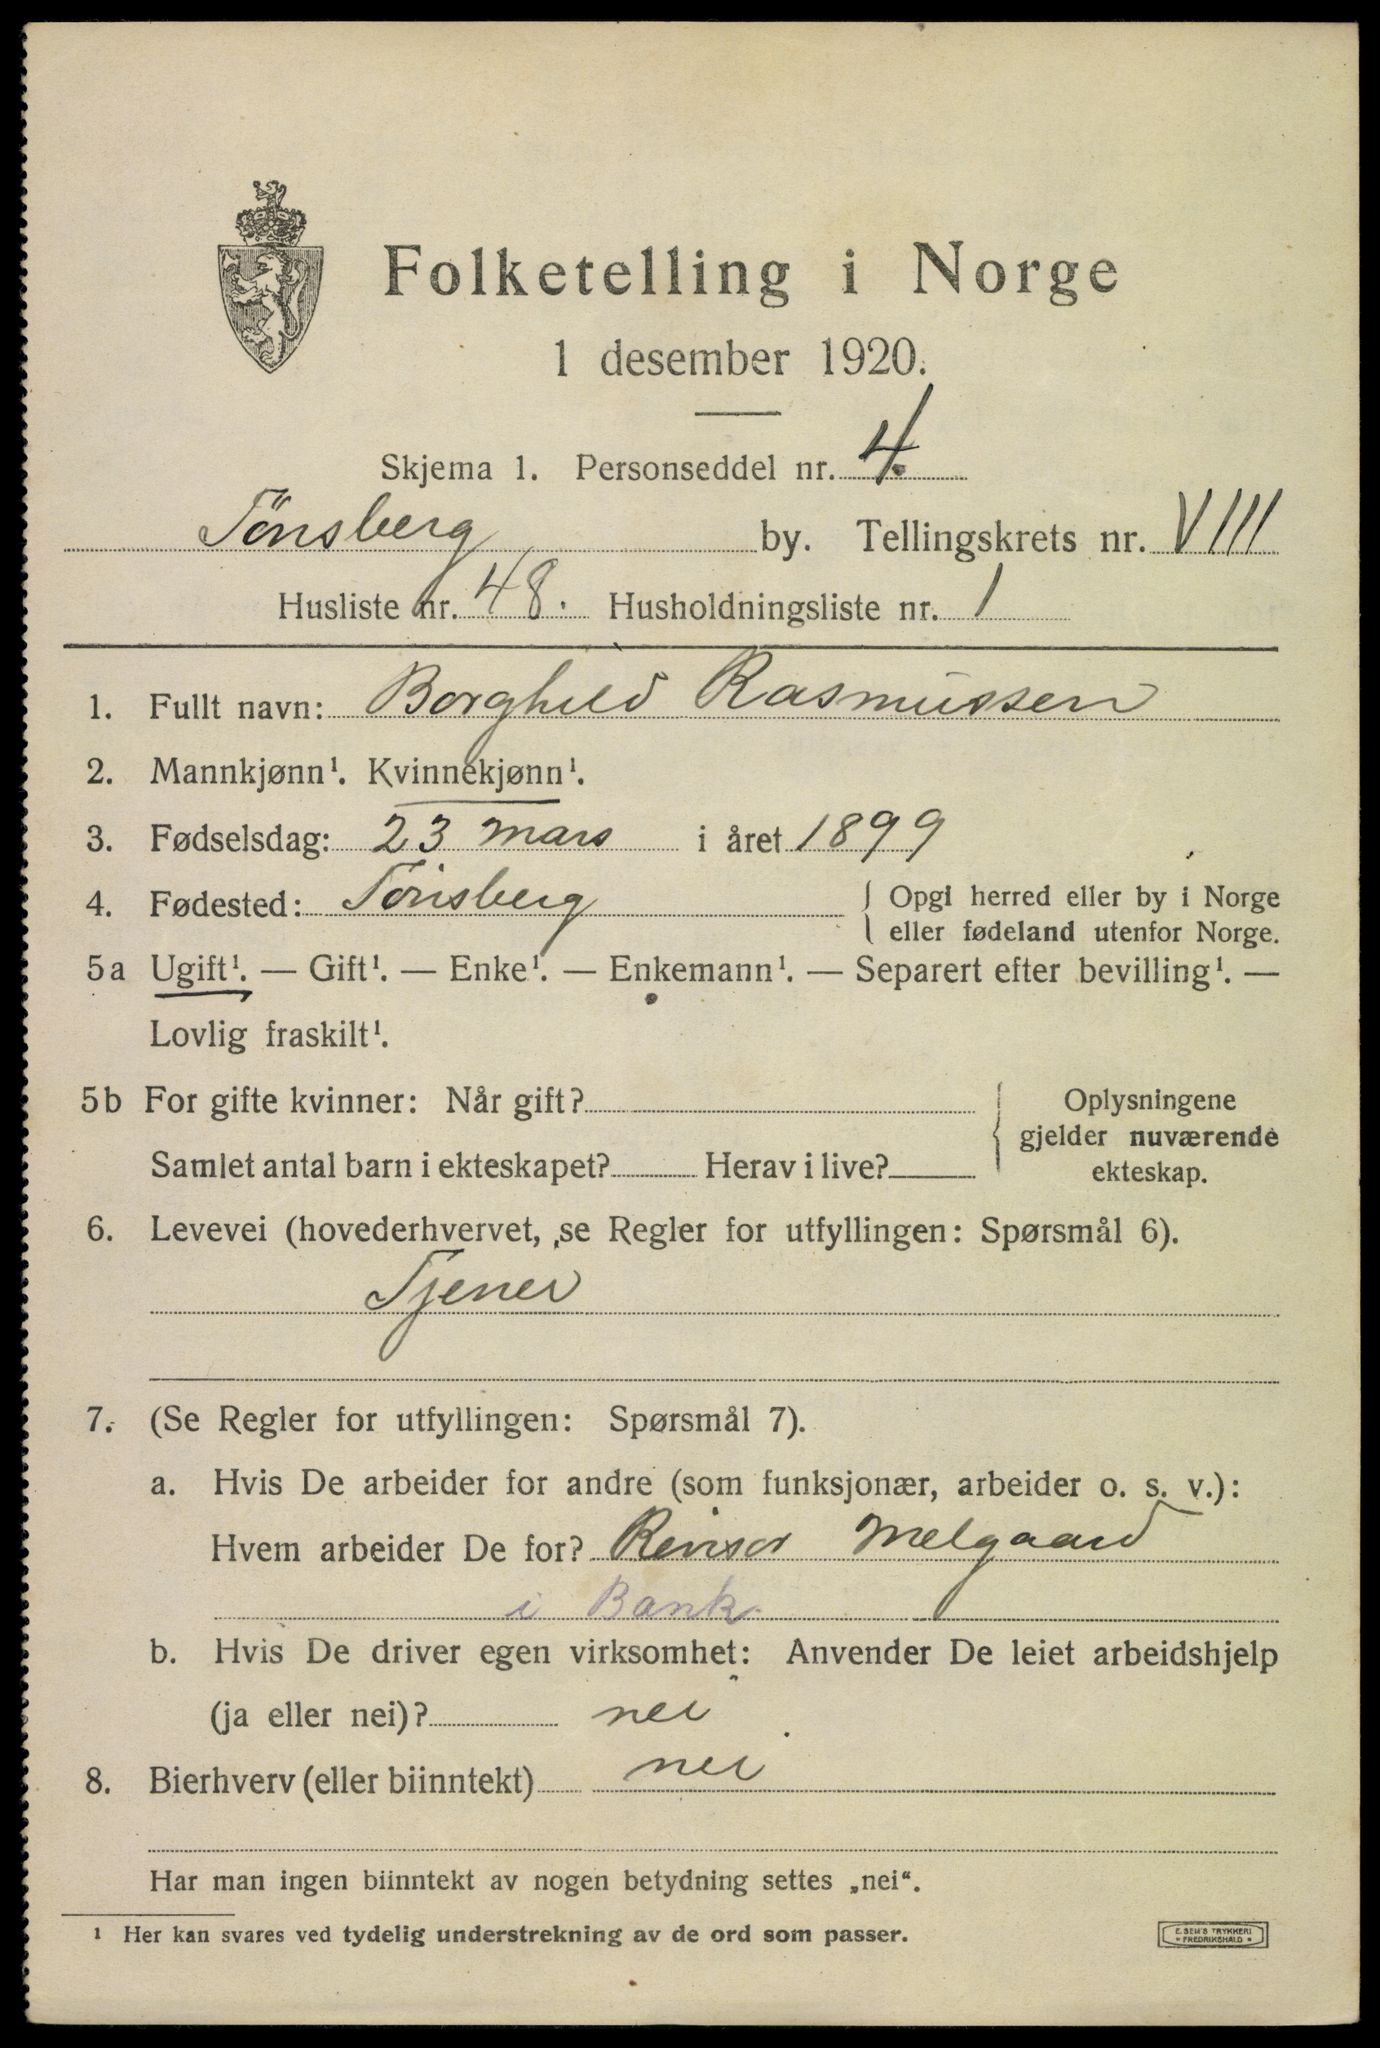 Folketelling i Norge
1 desember 1920.
Skjema 1. Personseddel nr. 4.
Tönsberg by. Tellingskrets nr. VIII
Husliste nr. 48. Husholdningsliste nr. 1
1. Fullt navn: Borghild Rasmussen
2. Mannkjønn¹. Kvinnekjønn¹.
3. Fødselsdag: 23 mars i året 1899
4. Fødested: Tönsberg { Opgi herred eller by i Norge
eller fødeland utenfor Norge.
5a Ugift¹. — Gift¹. — Enke¹. — Enkemann¹. — Separert efter bevilling¹. —
Lovlig fraskilt¹.
5b For gifte kvinner: Når gift? { Oplysningene
gjelder nuværende
Samlet antal barn i ekteskapet? Herav i live? ekteskap.
6. Levevei (hovederhvervet, se Regler for utfyllingen: Spørsmål 6).
Tjener
7. (Se Regler for utfyllingen: Spørsmål 7).
a. Hvis De arbeider for andre (som funksjonær, arbeider o. s. v.):
Hvem arbeider De for? Revisor Melgaard
i Bank
b. Hvis De driver egen virksomhet: Anvender De leiet arbeidshjelp
(ja eller nei)? nei
8. Bierhverv (eller biinntekt) nei
Har man ingen biinntekt av nogen betydning settes „nei“.
¹ Her kan svares ved tydelig understrekning av de ord som passer.
E. SEM'S TRYKKERI
* FREDRIKSHALD *